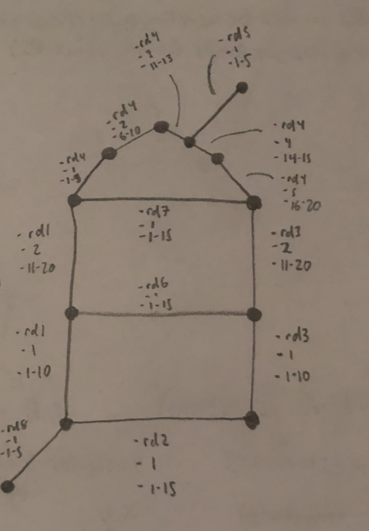 - rd4
- 3
- 11-13
- rd5
- 1
- 1-5
- rd4
- 2
- 6-10
- rd4
- 4
- 14-15
- rd4
- 1
- rd4
- 5
- 16-20
- rd7
- 1
- 1-15
- rd1
- 2
- 11-20
- rd3
- 2
- 11-20
- rd6
- 1-15
- rd1
- 1
- 1-10
- rd3
- 1
- 1-10
- rd8
- 1
- 1-5
- rd2
- 1
- 1-15